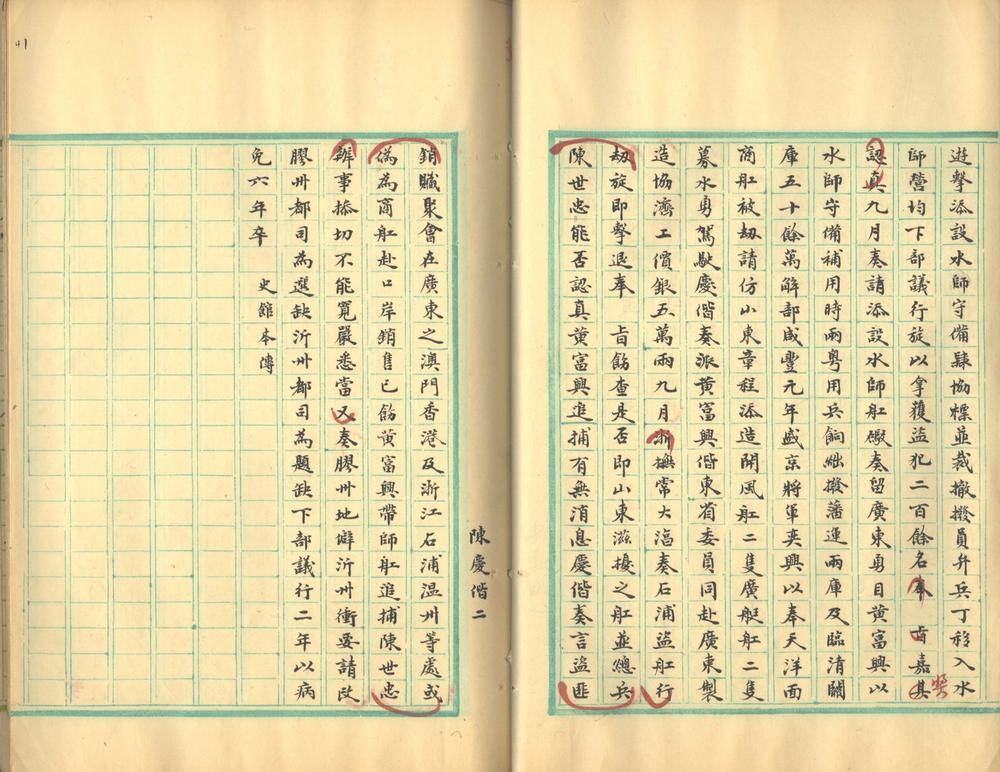 遊擊添設水師守備肄協標並裁撤撥員弁兵丁移入水
師營均下部議行旋以拿獲盜犯二百餘名奉 旨嘉其
獎
認真九月奏請添設水師舡礮奏留廣東勇目黃富興以
水師守備補用時兩粵用兵餉絀撥藩運兩庫及臨清關
庫五十餘萬解部咸豐元年盛京將軍奕興以奉天洋面
商舡被劫請仿山東章程添造開風舡二隻廣艇舡二隻
募水勇駕駛慶偕奏派黃富興偕東省委員同赴廣東製
造協濟工償銀五萬兩九月浙撫常大淳奏石浦盜舡行
劫旋即擊退奉 旨飭查是否即山東滋擾之舡並總兵
陳世忠能否認真黃富興追捕有無消息慶偕奏言盜匪
陳慶偕二
銷贓聚會在廣東之澳門香港及浙江石浦溫州等處或
偽為商舡赴口岸銷售已飭黃富興帶師舡追捕陳世忠
辦事操切不能寬嚴悉當又奏膠州地僻沂州衝要請改
膠州都司為選缺沂州都司為題缺下部議行二年以病
免六年卒 史館本傳
41